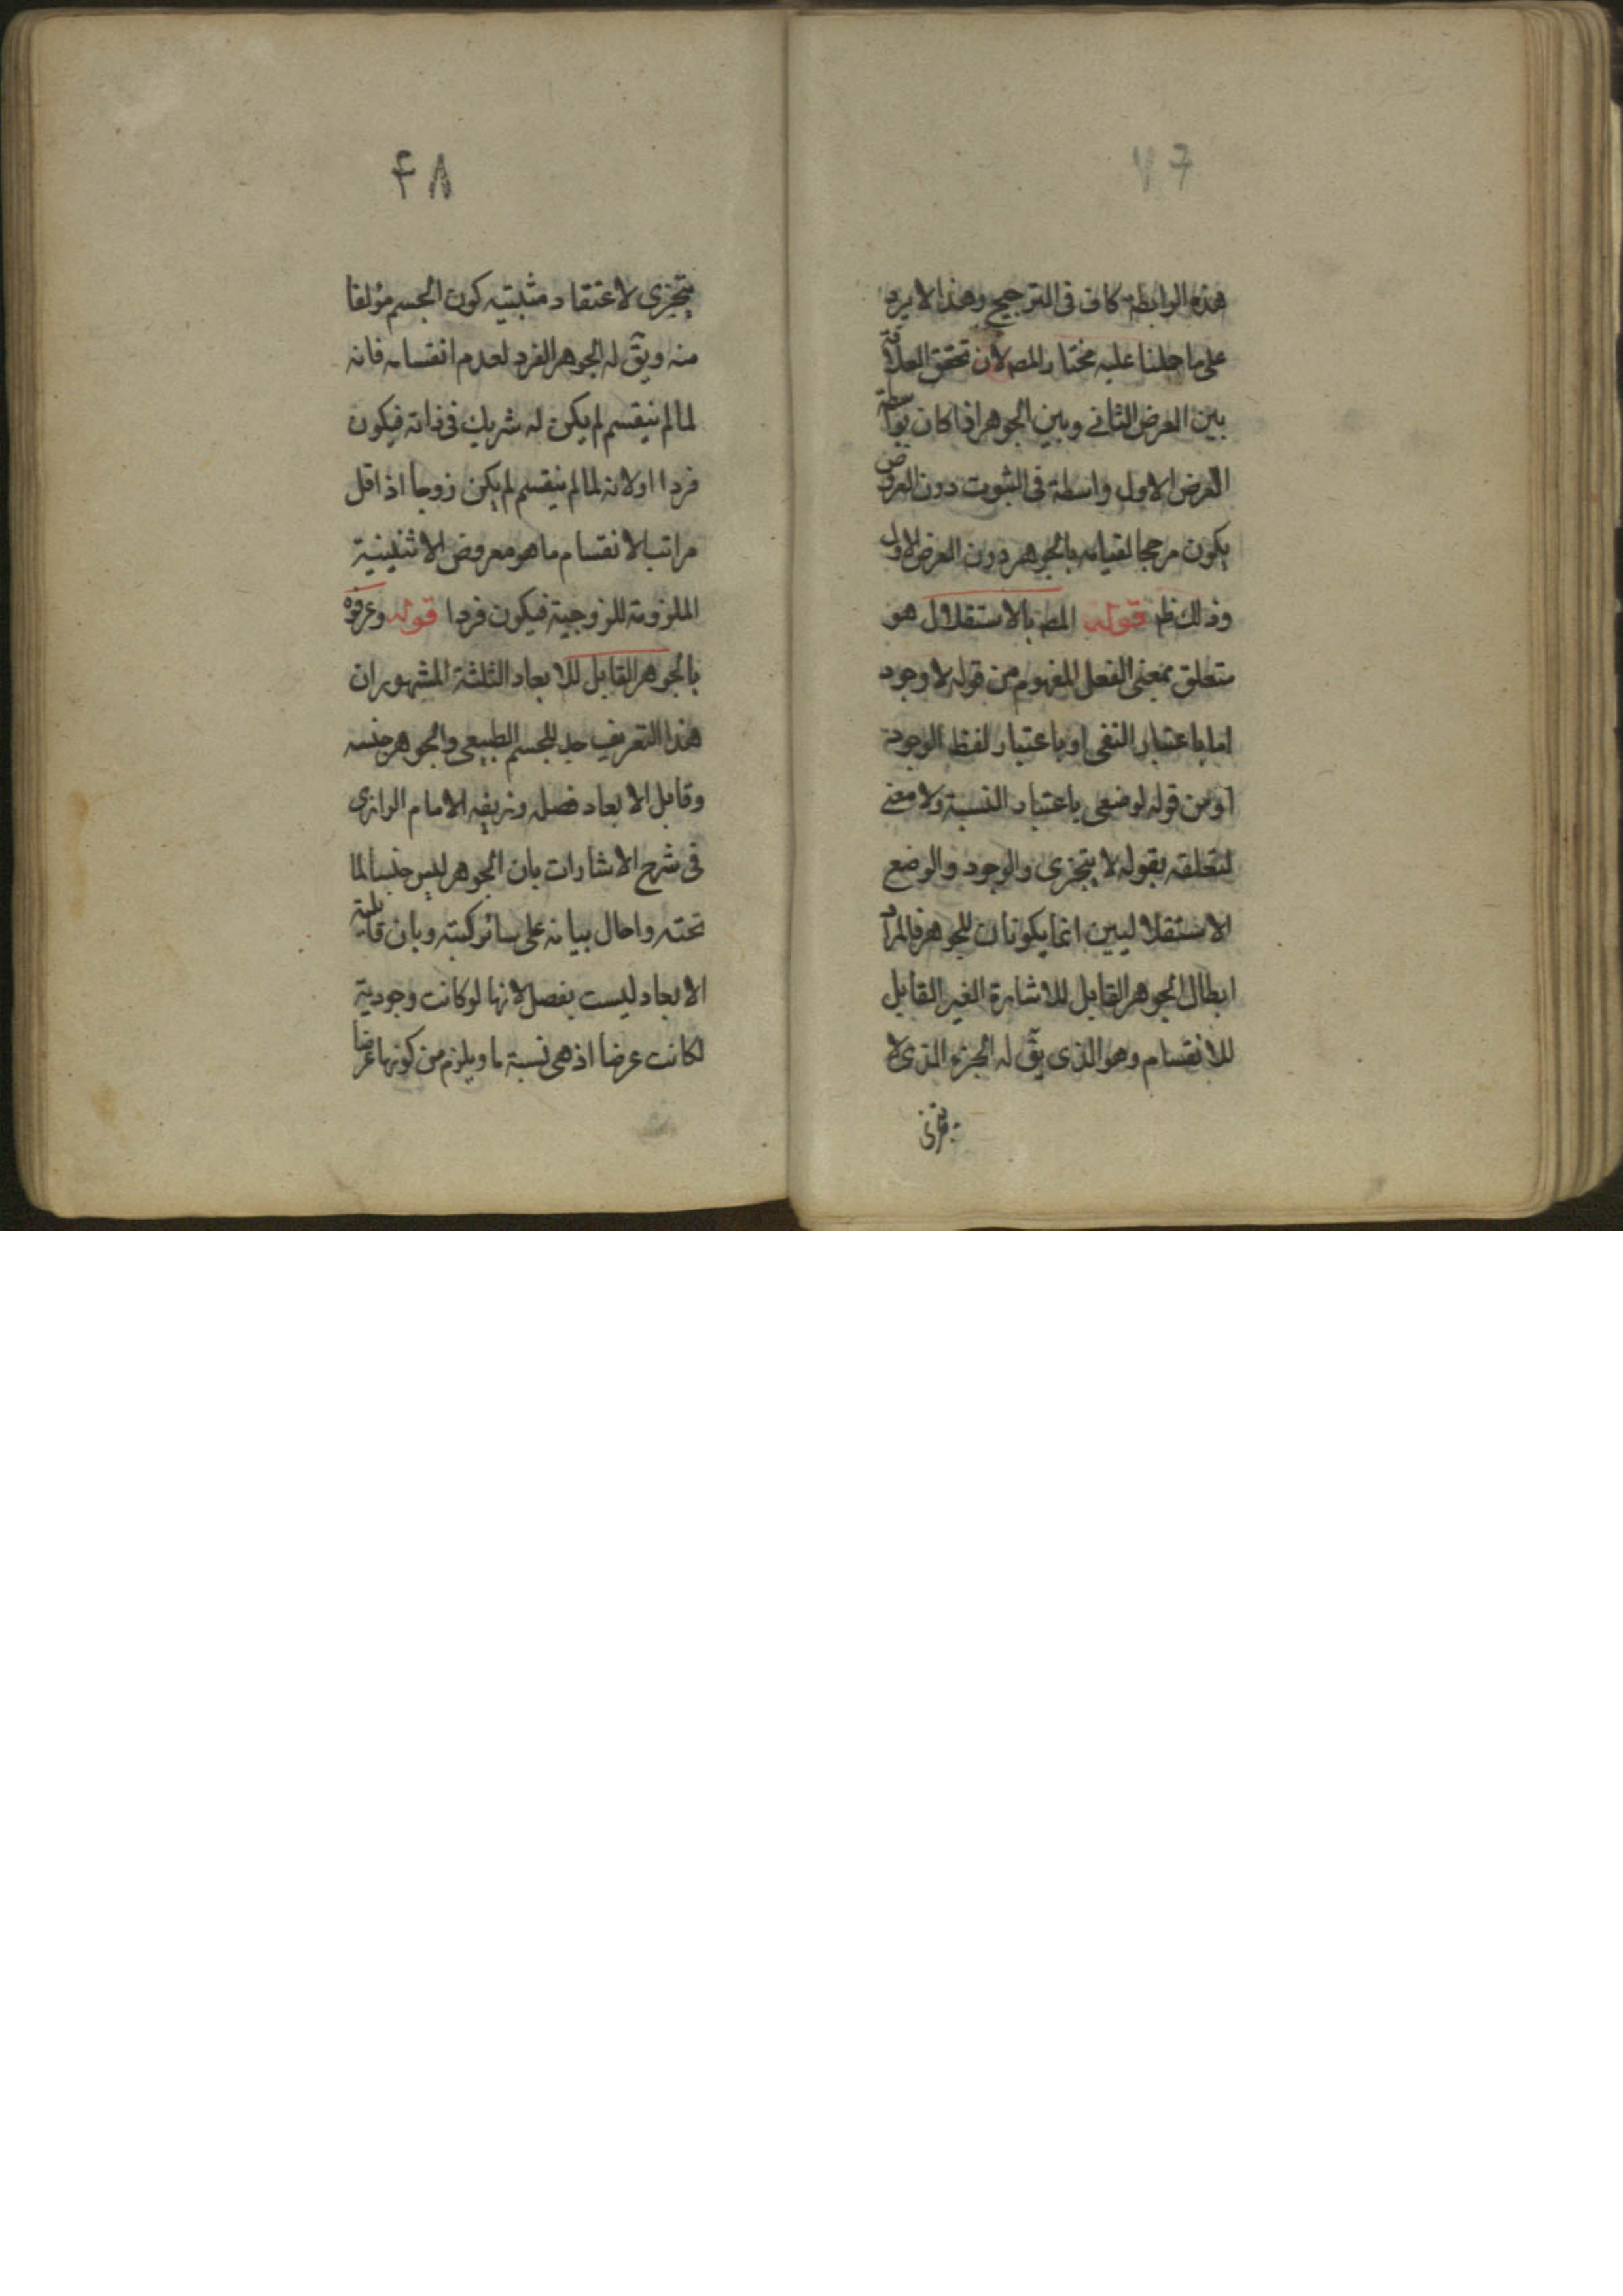 ۴۷
هذه الرابطة كاف فى الترجيح وهذا لا يرد
على ما حملنا عليه مختار المص لان تحقق العلاقة
بين العرض الثانى وبين الجوهر اذا كان بواسطة
العرض الاول واسطة فى الثبوت دون العروض
يكون مرجحا لقيامه بالجوهر دون العرض الاول
وذلك ظم قوله المص بالاستقلال هو
متعلق بمعنى الفعل المفهوم من قوله لا وجود
اما باعتبار النفى او باعتبار لفظ الوجود
او من قوله لوضعى باعتبار النسبة ولا معنى
لتعلقه بقوله لا يتجزى والوجود والوضع
الاستقلاليين انما يكونان للجوهر فالمراد
ابطال الجوهر القابل للاشارة الغير القابل
للانقسام وهو الذى يقّ له الجزء الذى لا
يتجزى
۴۸
يتجزى لاعتقاد مثبتيه كون الجسم مؤلفا
منه ويقّ له الجوهر الفرد لعدم انقسامه فانه
لما لم ينقسم لم يكن له شريك فى ذاته فيكون
فردا او لانه لما لم ينقسم لم يكن زوجا اذ اقل
مراتب الانقسام ما هو معروض الاثنينية
الملزومة للزوجية فيكون فردا قوله وعرفوه
بالجوهر القابل للابعاد الثلثة المشهور ان
هذا التعريف حد للجسم الطبيعى والجوهر جنسه
وقابل الابعاد فصله وزيفه الامام الرازى
فى شرح الاشارات بان الجوهر ليس جنسا لما
تحته واحال بيانه على سائر كتبه وبان قابلية
الابعاد ليست بفصل لانها لو كانت وجودية
لكانت عرضا اذ هى نسبة ما ويلزم من كونها عرضا